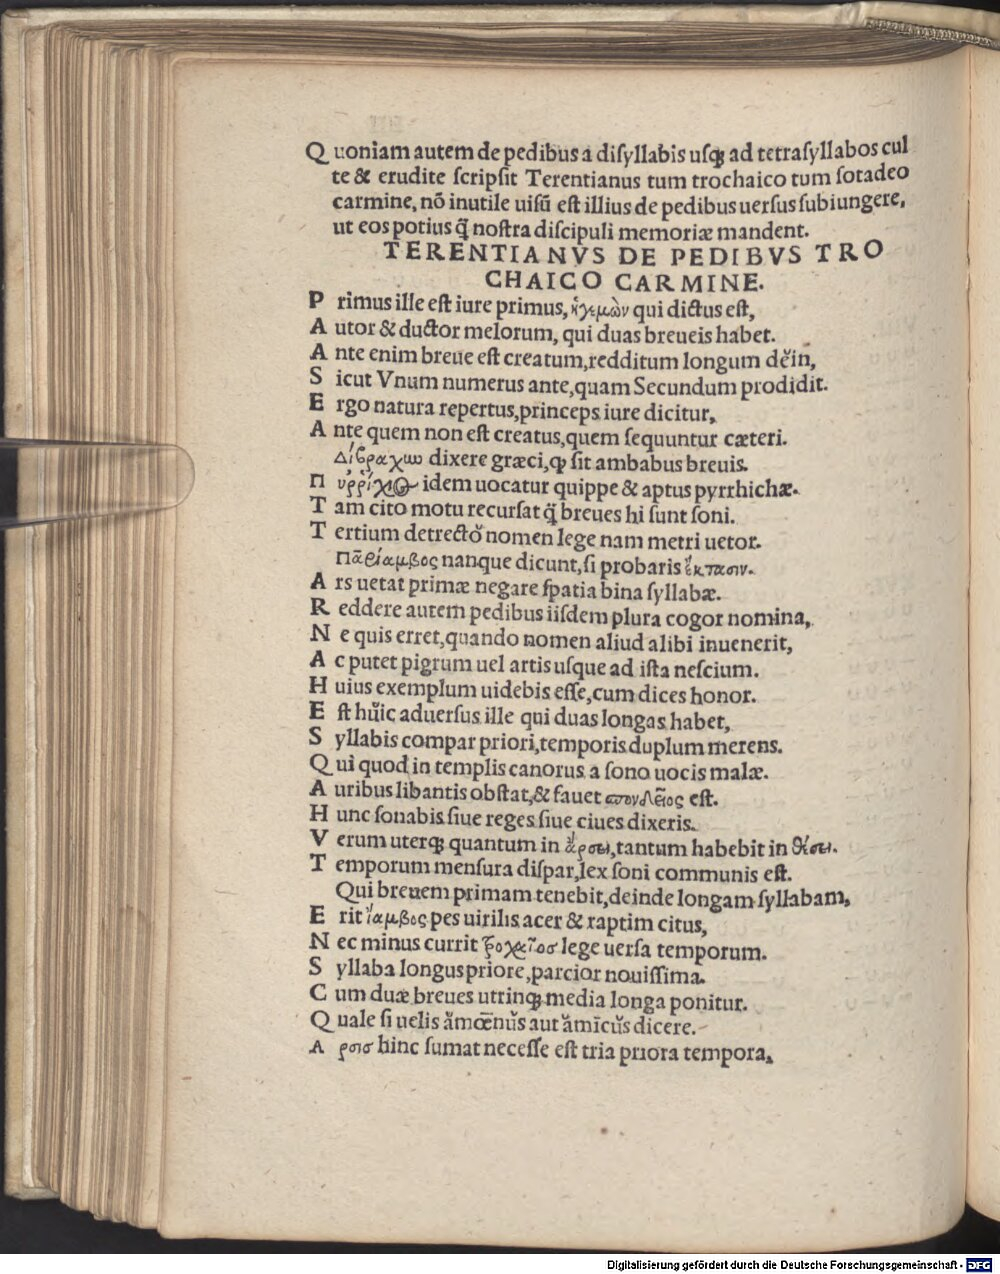 Q uoniam autem de pedibus a diſyllabis uſq; ad tetraſyllabos cul
te & erudite ſcripſit Terentianus tum trochaico tum ſotadeo
carmine, nō inutile uiſū eſt illius de pedibus uerſus ſubiungere,
ut eos potius q̃ noſtra diſcipuli memoriæ mandent.
TERENTIANVS DE PEDIBVS TRO
CHAICO CARMINE.
P rimus ille eſt iure primus, ἡγεμὼν qui dictus eſt,
A utor & ductor melorum, qui duas breueis habet.
A nte enim breue eſt creatum,redditum longum dĕin,
S icut Vnum numerus ante,quam Secundum prodidit.
E rgo natura repertus,princeps iure dicitur,
A nte quem non eſt creatus,quem ſequuntur cæteri.
Δίβραχυν dixere græci,q; ſit ambabus breuis.
Π υῤῥίχιος idem uocatur quippe & aptus pyrrhichæ.
T am cito motu recurſat q̃ breues hi ſunt ſoni.
T ertium detrecto nomen lege nam metri uetor.
Παρίαμβος nanque dicunt,ſi probaris ἔκτασιν.
A rs uetat primæ negare ſpatia bina ſyllabæ.
R eddere autem pedibus iiſdem plura cogor nomina,
N e quis erret,quando nomen aliud alibi inuenerit,
A c putet pigrum uel artis uſque ad iſta neſcium.
H uius exemplum uidebis eſſe,cum dices honor.
E ſt huic aduerſus ille qui duas longas habet,
S yllabis compar priori,temporis duplum merens.
Q ui quod in templis canorus a ſono uocis malæ.
A uribus libantis obſtat,& fauet σπονδεῖος eſt.
H unc ſonabis ſiue reges ſiue ciues dixeris.
V erum uterq; quantum in ἄρσει,tantum habebit in θέσει.
T emporum menſura diſpar,lex ſoni communis eſt.
Qui breuem primam tenebit,deinde longam ſyllabam,
E rit ἴαμβος pes uirilis acer & raptim citus,
N ec minus currit τροχαῖοσ lege uerſa temporum.
S yllaba longus priore,parcior nouiſſima.
C um duæ breues utrinq; media longa ponitur.
Q uale ſi uelis ămœ̄nŭs aut ămīcŭs dicere.
Α ρσισ hinc ſumat neceſſe eſt tria priora tempora,
Digitalisierung gefördert durch die Deutsche Forschungsgemeinschaft - DFG